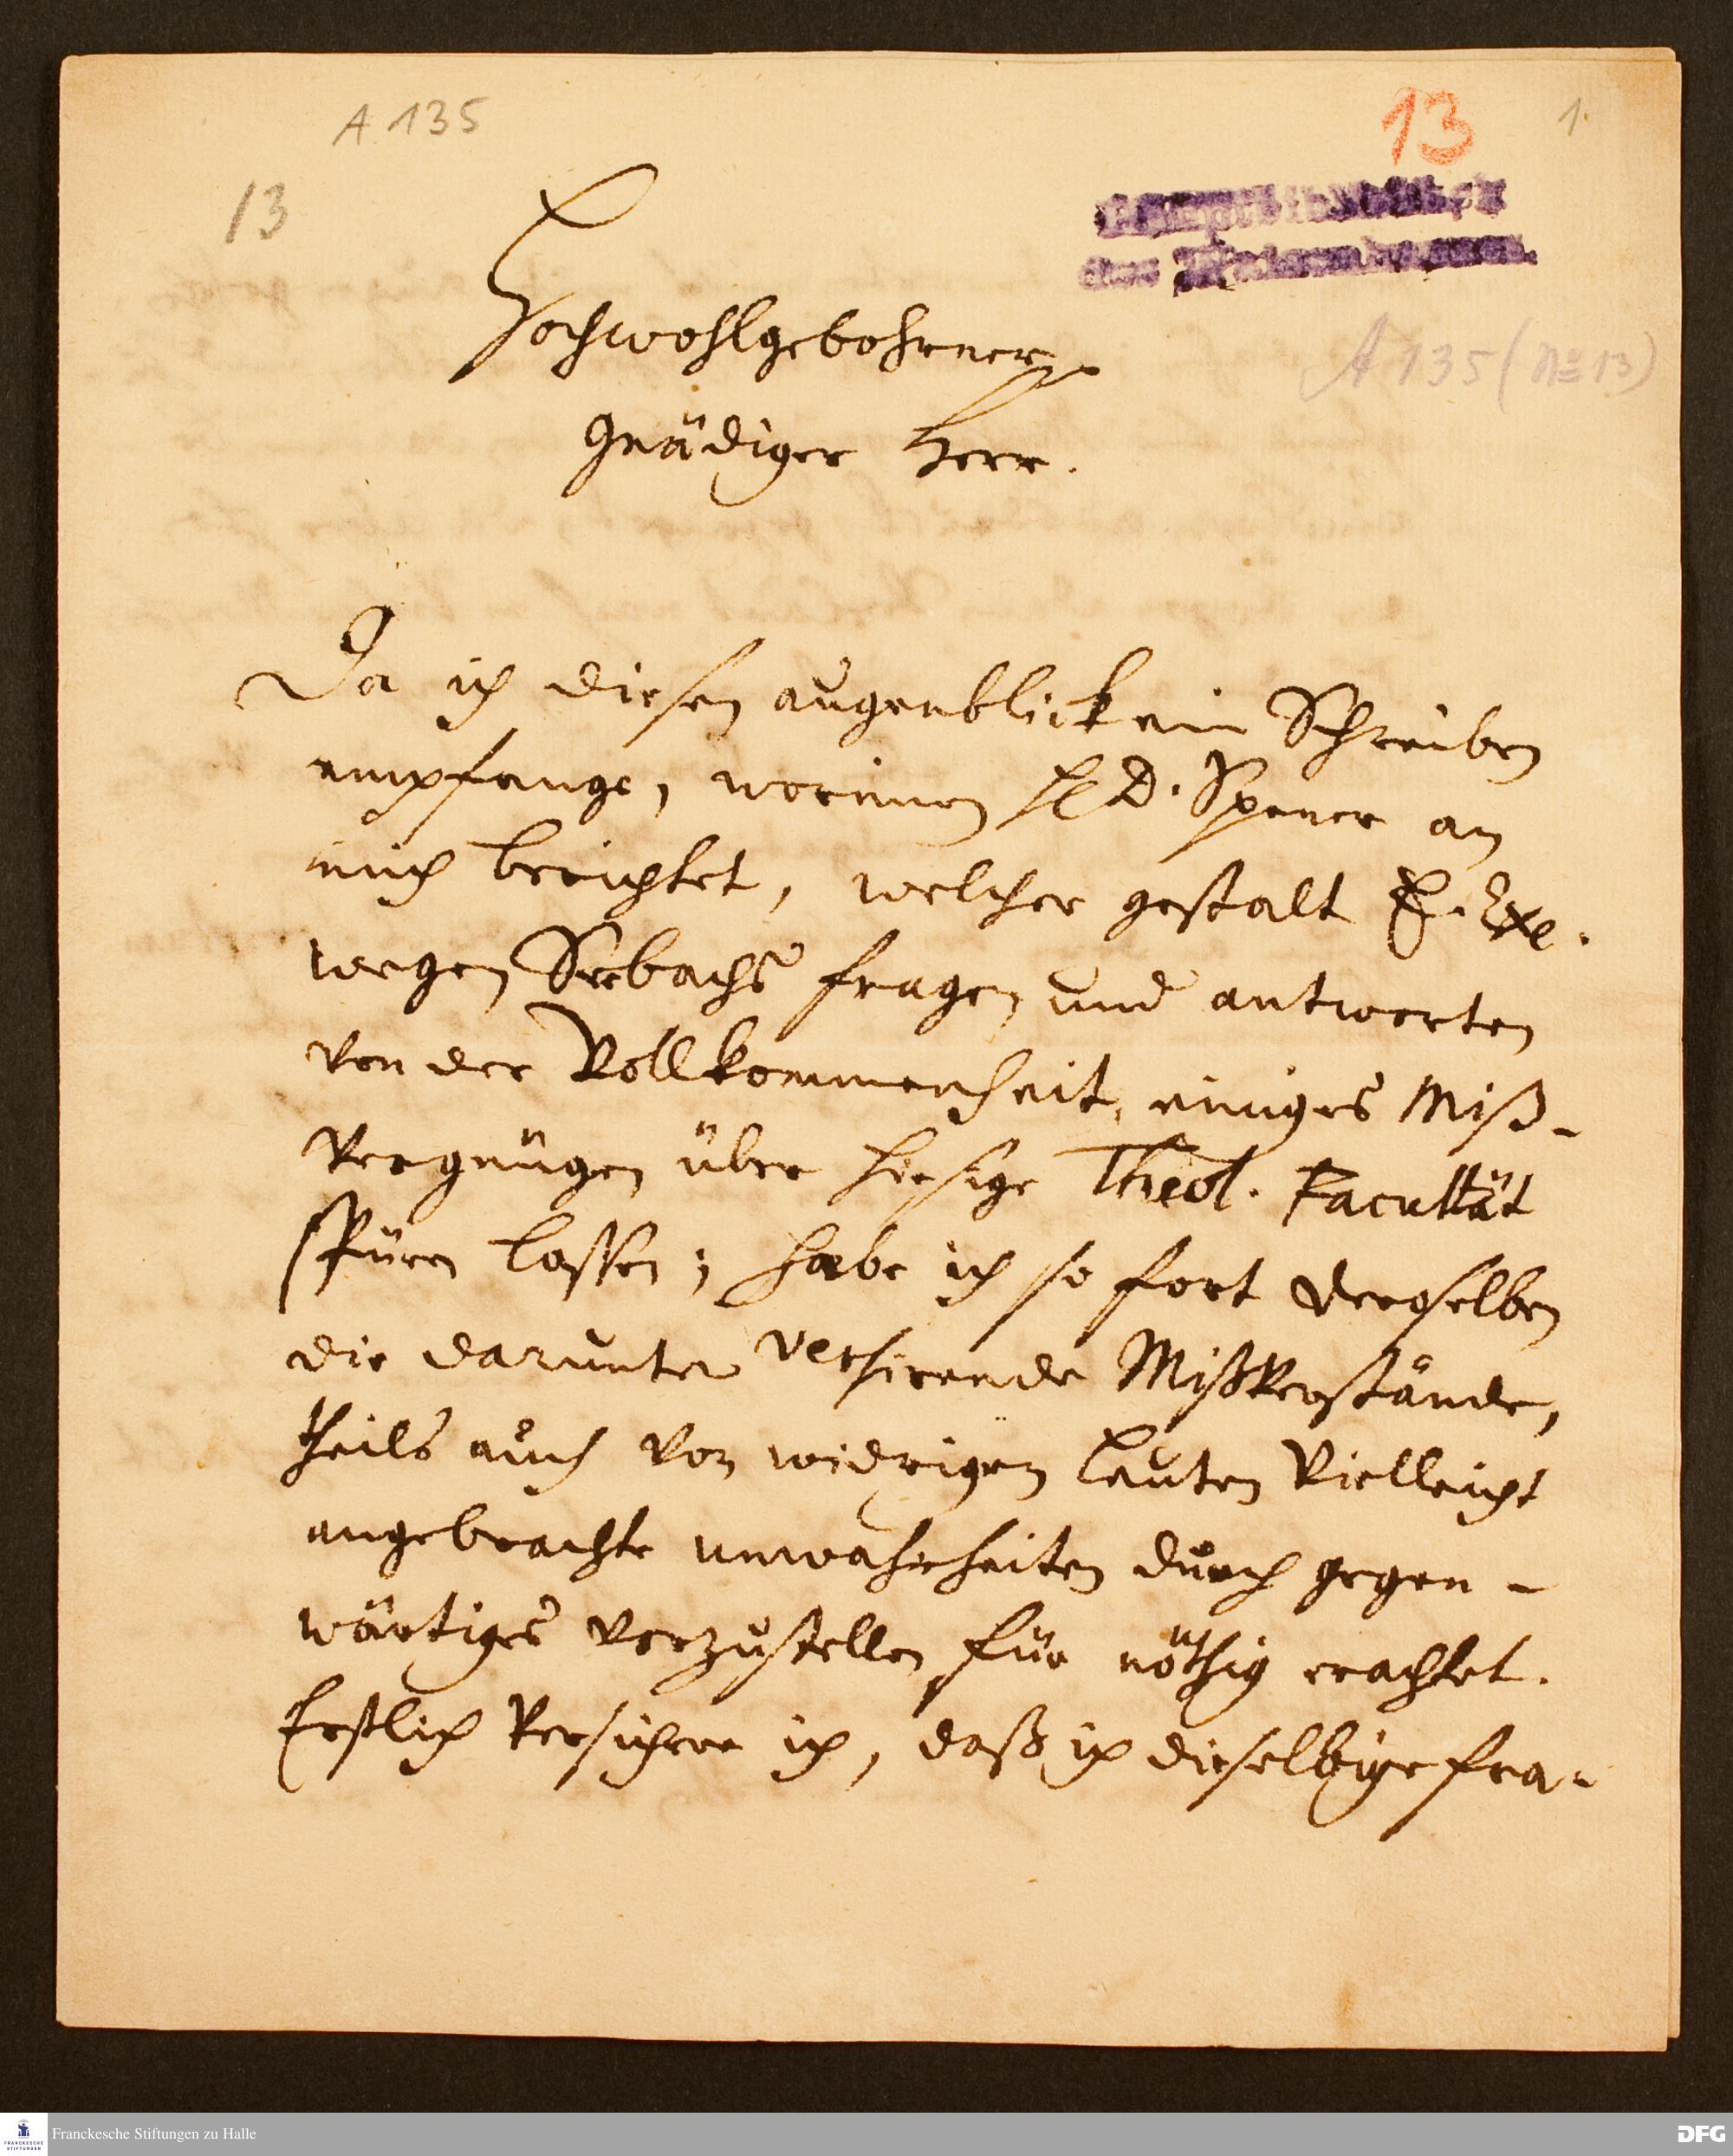 A 135
13
1.
13
Hauptbibliothek
des Waisenhauses.
A 135 (No 13)
Hochwohlgebohrner
Gnädiger Herr.
Da ich diesen augenblick ein Schreiben
empfange, worinnen H. D. Spener an
mich berichtet, welcher gestalt E. Exc.
wegen Seebachs fragen und antworten
von der Vollkommenheit, einiges Miß-
vergnügen über hiesige Theol. Facultät
spüren lassen; habe ich so fort deroselben
die darunter versirende Mißverstände,
theils auch von widrigen leuten vielleicht
angebrachte unwahrheiten durch gegen-
wärtiges vorzustellen für nöthig erachtet.
Erstlich versichere ich, daß ich dieselbige fra-
FRANCKESCHE
STIFTUNGEN
Franckesche Stiftungen zu Halle
DFG